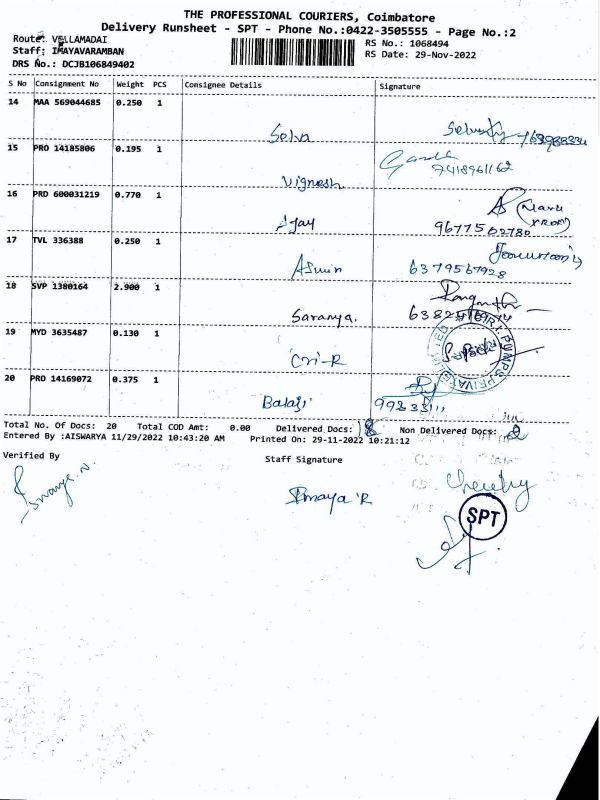 THE PROFESSIONAL COURIERS, Coimbatore
Delivery Runsheet - SPT - Phone No.:0422-3505555 - Page No.:2
Route: VELLAMADAI
Staff: IMAYAVARAMBAN
DRS No.: DCJB106849402
RS No.: 1068494
RS Date: 29-Nov-2022
S No Consignment No Weight PCS Consignee Details Signature
14 MAA 569044685 0.250 1
Selva
15 PRO 14185806 0.195 1
7418961162
Vignesh
16 PRD 600031219 0.770 1
Ajay
17 TVL 336388 0.250 1
Aswin 6379567928
18 SVP 1380164 2.900 1
Saranya.
19 MYD 3635487 0.130 1
Cri-R
20 PRO 14169072 0.375 1
Balaji
Total No. Of Docs: 20 Total COD Amt: 0.00 Delivered Docs: 18 Non Delivered Docs: 2
Entered By :AISWARYA 11/29/2022 10:43:20 AM Printed On: 29-11-2022 10:21:12
Verified By Staff Signature
Imaya R
SPT